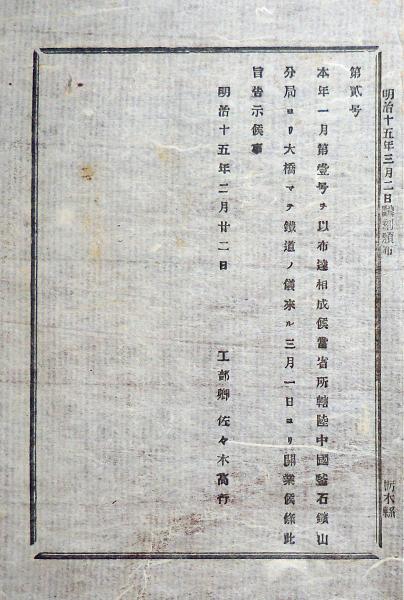 明治十五年三月二日飜刻頒布
栃木縣
第貳号
本年一月第壹号ヲ以布達相成候當省所轄陸中國釜石鑛山
分局ヨリ大橋マテ鐵道ノ儀来ル三月一日ヨリ開業候條此
旨告示候事
明治十五年二月廿二日
工部卿 佐々木高行